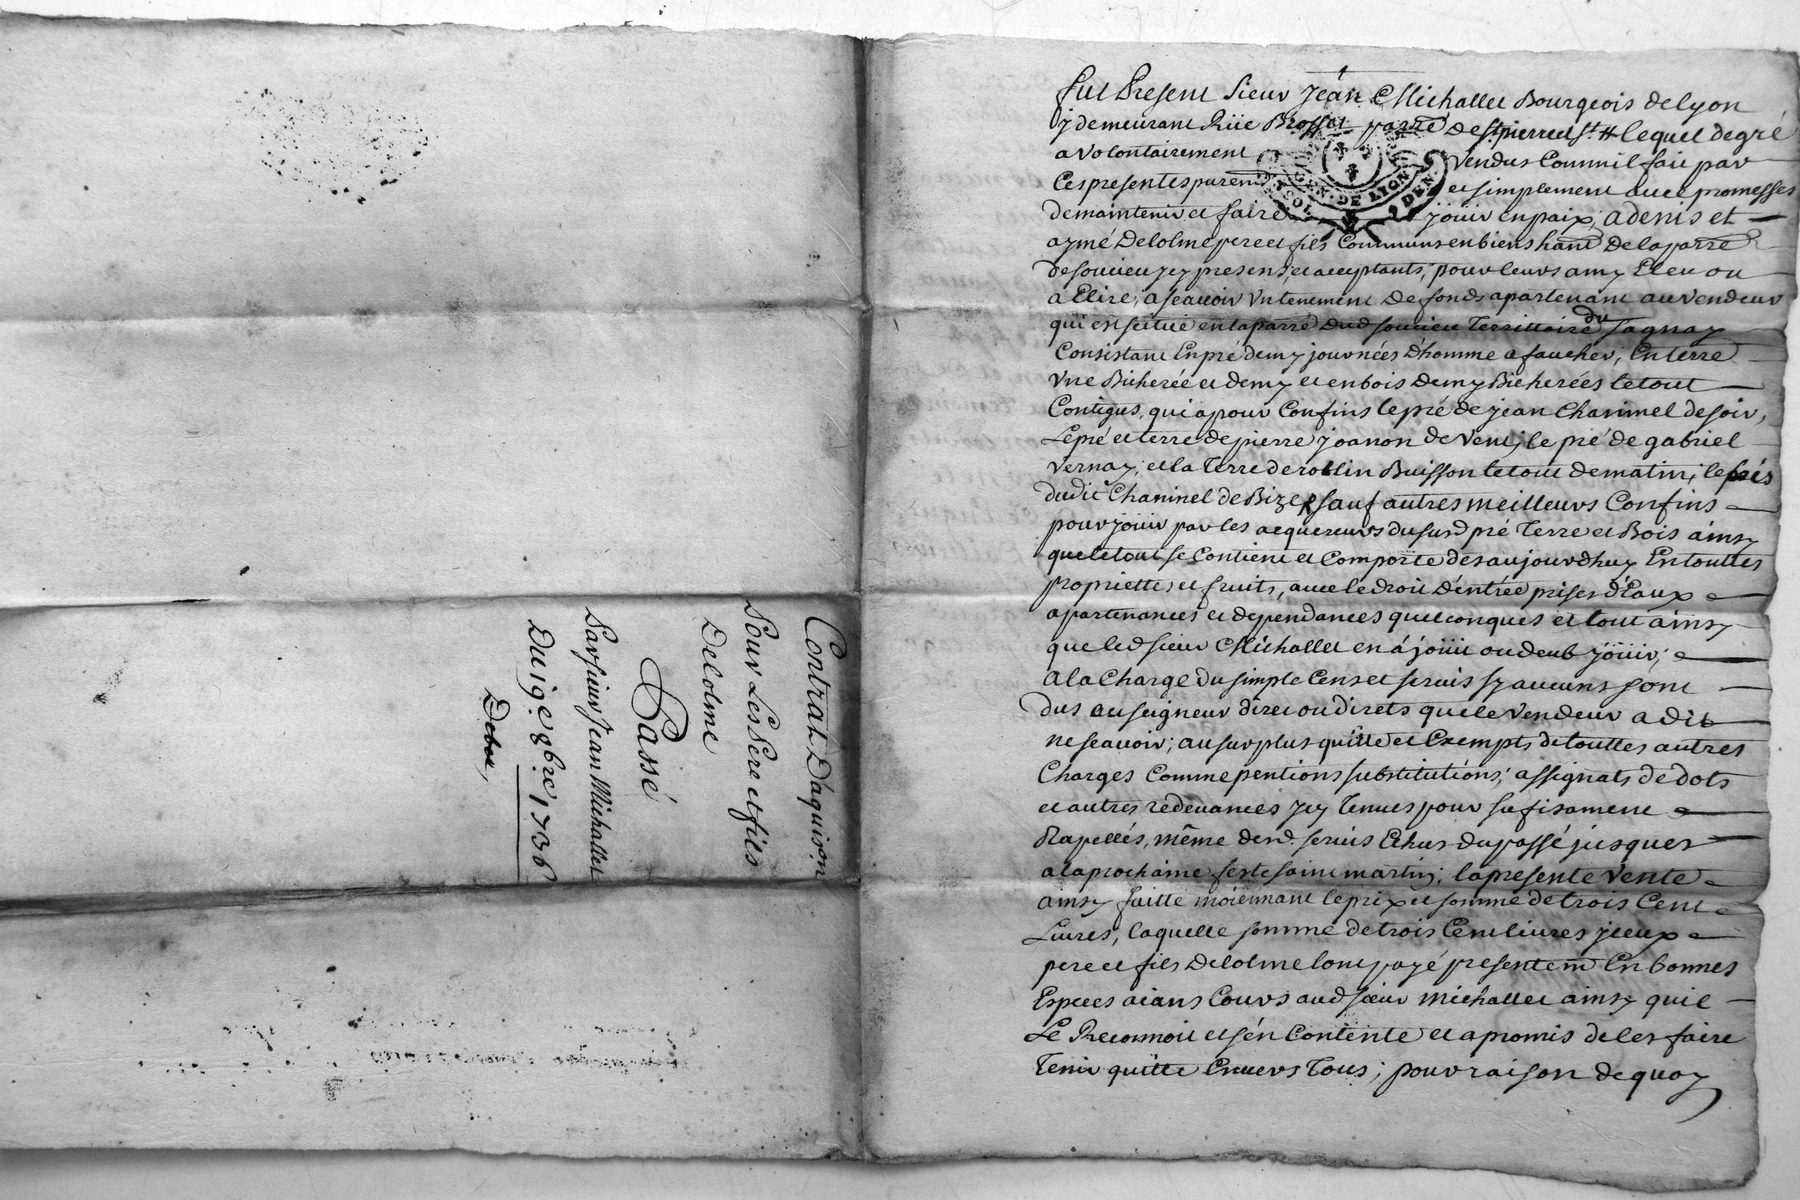 Contrat D'aquison
Pour Les Pere et fils
Delolme
Passé
Par sieur Jean Michallet
Du 19e 8bre 1736
Fut Present Sieur Jean Michallet Bourgeois de Lyon
y demeurant Rüe parre de st pierre lequel de gré
a volontairement vendus Comm'il fait par
Ces presentes purem et simplement avec promesses
de maintenir et faire joüir en paix, a denis et
aymé Delolme pere et fils Communs en biens hant de la parre
de soucieu icy presens et acceptants, pour leurs amy Eleu ou
a Elire, a scavoir un tenement de fonds apartenant au vendeur
qui est scitué en la parre dud soucieu Territtoire du sagnay
Consistant En pré demy journées d'homme a faucher, En terre
une Bicherée et demy et en bois demy Bicherées le tout
Contigus, qui a pour Confins le pré de jean Chaninel de soir,
Le pré et terre de pierre joanon de vent, le pré de gabriel
vernay, et la Terre de Buisson le tout de matin; le prés
dudit Chaninel de Bize, sauf autres meilleurs Confins
pour joüir par les acquereurs du susd pré Terre et Bois ainsy
que le tout se Contient et Comporte des aujourdhuy En touttes
proprietté et fruits, avec le droit d'entrée prises d'Eaux
apartenances et dependances quelconques et tout ainsy
que led sieur Michallet en à joüit ou deub joüir;
a la Charge du simple Cens et servis sy aucuns sont
dus au seigneur direct ou directs que le vendeur a dit
ne scavoir; au surplus quitte et Exempts de touttes autres
Charges Comme pentions substitutions, assignats de dots
et autres redevances icy Tenues pour sufisament
Rapellés, même desd. servis Echus du passé jusques
a la prochaine feste saint martin; la presente vente
ainsy faitte moiennant le prix et somme de trois Cent
Livres, laquelle somme de trois Cent livres yceux
pere et fils Delolme l'ont payé presentem En bonnes
Especes aians Cours aud sieur michallet ainsy qu'il
Le Reconnoit et s'en Contente et a promis de les faire
Tenir quitte Envers Tous; pour raison de quoy